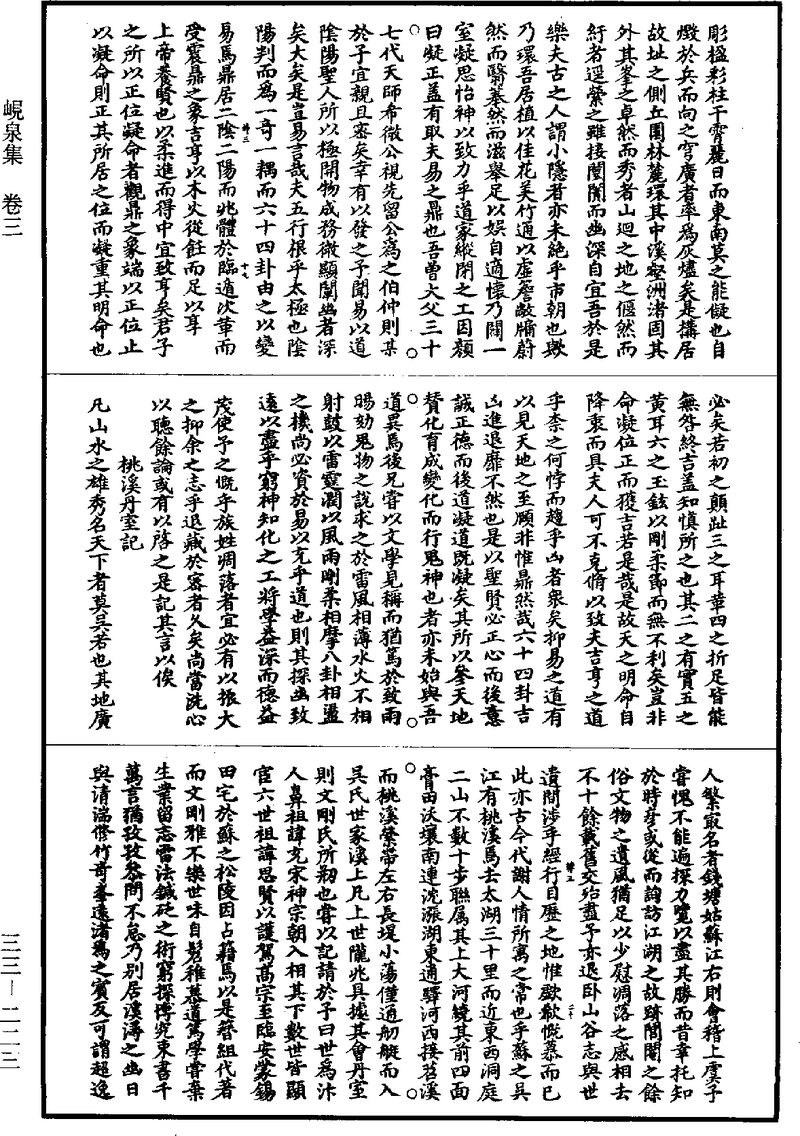 彫楹彩柱干霄麗日而東南莫之能儗也自
燬於兵而向之穹廣者率為灰燼矣是搆居
故址之側丘園林麓環其中溪壑洲渚固其
外其峯之卓然而秀者山迴之地之偃然而
紆者逕縈之雖接闤闠而幽深自宜吾於是
樂夫古之人謂小隱者亦未絶乎市朝也歟
乃環吾居植以佳花美竹通以虛簷敞牖蔚
然而翳蓁然而滋舉足以娛自適懷乃闢一
室凝思怡神以致力乎道家縱閉之工因顏
曰凝正蓋有取夫易之鼎也吾曾大父三十
七代天師希微公視先留公為之伯仲則某
於子宜親且審矣幸有以發之予聞易以道
陰陽聖人所以極開物成務微顯闡幽者深
矣大矣是豈易言哉夫五行根乎太極也陰
陽判而為一奇一耦而六十四卦由之以變
易焉鼎居二陰二陽而兆體於臨遁次革而
受震鼎之象吉亨以木火從飪而足以享
上帝養賢也以柔進而得中宜致亨矣君子
之所以正位凝命者觀鼎之象端以正位止
以凝命則正其所居之位而凝重其明命也
必矣若初之顛趾三之耳革四之折足皆能
無咎終吉蓋知慎所之也其二之有實五之
黃耳六之玉鉉以剛柔節而無不利矣豈非
命凝位正而獲吉若是哉是故天之明命自
降衷而具夫人可不克脩以致夫吉亨之道
乎柰之何悖而趨乎凶者衆矣抑易之道有
以見天地之至賾非惟鼎然哉六十四卦吉
凶進退靡不然也是以聖賢必正心而後意
誠正德而後道凝道既凝矣其所以參天地
賛化育成變化而行鬼神也者亦未始與吾
道異焉後兄嘗以文學見稱而猶篤於致雨
暘劾鬼物之説求之於雷風相薄水火不相
射鼓以雷霆潤以風雨剛柔相摩八卦相盪
之機尚必資於易以充乎道也則其探幽致
遠以盡乎窮神知化之工將學益深而德益
茂使予之慨乎族姓凋落者宜必有以振大
之抑余之志乎退藏於密者久矣尚當洗心
以聽餘論或有以啓之是記其言以俟
桃溪丹室記
凡山水之雄秀名天下者莫吳若也其地廣
人繁最名者錢塘姑蘇江右則會稽上虞予
嘗愧不能遍探力覽以盡其勝而昔幸托知
於時身或從而詢訪江湖之故跡閭閻之餘
俗文物之遺風猶足以少慰凋落之感相去
不十餘載舊交殆盡予亦退卧山谷志與世
遺間涉乎經行目歷之地惟歔欷慨慕而已
此亦古今代謝人情所寓之常也乎蘇之吳
江有桃溪焉去太湖三十里而近東西洞庭
二山不數十步聯属其上大河繞其前四面
膏田沃壤南連沈漲湖東通驛河西接苕溪
而桃溪縈帶左右長堤小蕩僅通舠艇而入
吳氏世家溪上凡上世隴兆具據其會丹室
則文剛氏所剏也嘗以記請於予曰世為汴
人鼻祖諱充宋神宗朝入相其下數世皆顯
宦六世祖諱思賢以護駕高宗至臨安蒙錫
田宅於蘇之松陵因占籍焉以是簪組代著
而文剛雅不樂世味自髫稚慕道篤學嘗棄
生業留志雷法鍼砭之術窮探博究柬書千
萬言猶孜孜叅問不怠乃別居溪濤之幽日
與清湍修竹奇峯遠渚為之賓友可謂超逸
峴泉集　卷三
三三—二一三